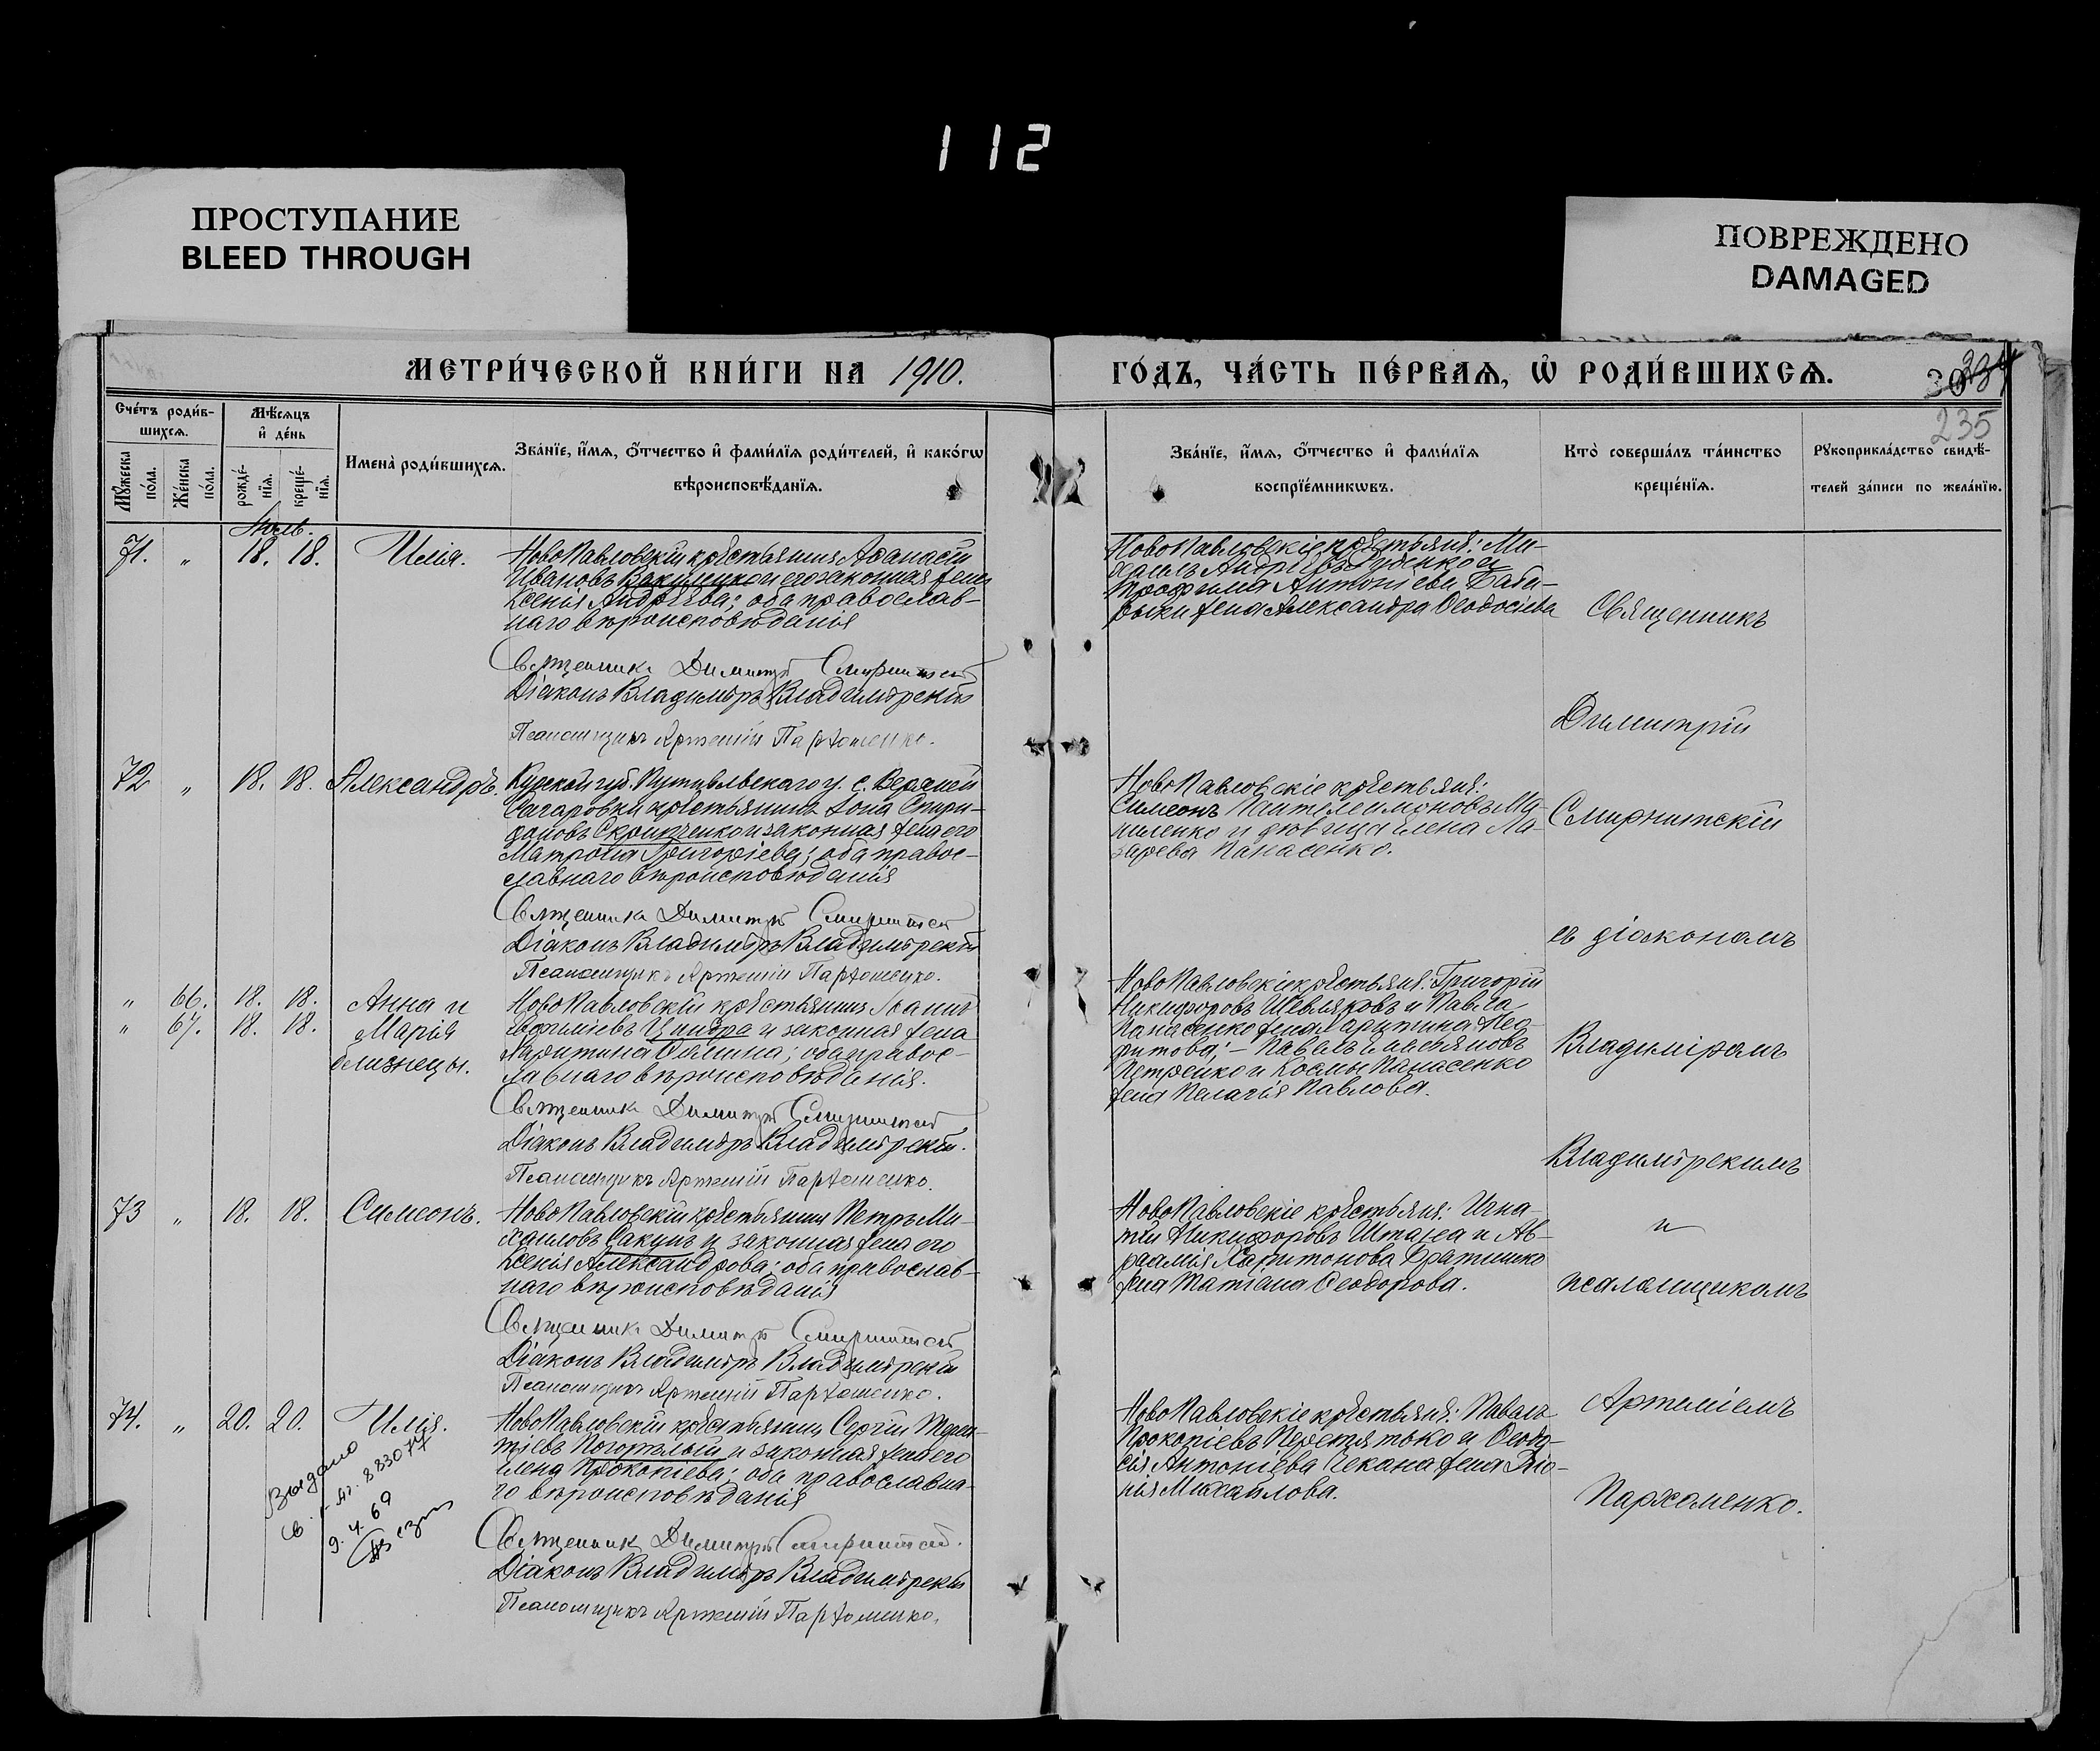 112
ПРОСТУПАНИЕ
BLEED THROUGH
ПОВРЕЖДЕНО
DAMAGED
МЕТРИ́ЧЕСКОЙ КНИ́ГИ НА 1910.
ГО́ДЪ, ЧА́СТЬ ПЕ́РВАѦ, Ѡ҆ РОДИ́ВШИХСѦ.
235
Сче́тъ роди́в-
шихсѧ.
Мѣ́сѧцъ
и҆ де́нь
Мꙋ́жеска по́ла.
Же́нска по́ла.
рожде́-
нїѧ.
креще́-
нїѧ.
Имена̀ роди́вшихсѧ.
Зва́нїе, и҆́мѧ, ѻ҆́тчество и҆ фами́лїѧ роди́телей, и҆ како́гѡ
вѣроисповѣ́данїѧ.
Зва́нїе, и҆́мѧ, ѻ҆́тчество и҆ фами́лїѧ
воспрїе́мникѡвъ.
Кто̀ соверша́лъ та́инство
креще́нїѧ.
Рꙋкоприкла́дство свидѣ́-
телей за́писи по жела́нїю.
Іюль.
71. " 18. 18. Илія.
НовоПавловскій крестьянинъ Аѳанасій
Ивановъ Вакуленко и его законная жена
Ксенія Андреева; оба православ-
наго вѣроисповѣданія
Священникъ Димитрій Смирнитскій
Діаконъ Владиміръ Владимірскій
Псаломщикъ Артемій Пархоменко.
НовоПавловскіе крестьяне: Ми-
хаилъ Андреевъ Руденко и
Трофима Антоніева Баба-
жена Александра Ѳеодосіева
72 " 18. 18. Александръ.
Курской губ. Путивльскаго у. с. Верхней
Сагаровки крестьянинъ Іона Спири-
доновъ Скрипченко и законная жена его
Матрона Григоріева; оба правос-
славнаго вѣроисповѣданія
Священникъ Димитрій Смирнитскій
Діаконъ Владиміръ Владимірскій
Псаломщикъ Артемій Пархоменко.
НовоПавловскіе крестьяне:
Симеонъ Пантелеимоновъ Ма-
ненко и дѣвица Елена Ла-
зарева Панасенко.
" 66. 18. 18. Анна и
" 67. 18. 18. Марія
близнецы.
НовоПавловскій крестьянинъ Іоаннъ
Евфиміевъ Цындра и законная жена
Харитина; оба правос-
лавнаго вѣроисповѣданія.
Священникъ Димитрій Смирнитскій
Діаконъ Владиміръ Владимірскій.
Псаломщикъ Артемій Пархоменко.
НовоПавловскіе крестьяне: Григорій
Никифоровъ Шевляковъ и Павла
Панасенко жена Харитина
Павелъ
Петренко и Космы Панасенко
жена Пелагія Павлова.
73 " 18. 18. Симеонъ.
НовоПавловскій крестьянинъ Петръ Ми-
хаиловъ Сакунъ и законная жена его
Ксенія Александрова; оба православ-
наго вѣроисповѣданія
Священникъ Димитрій Смирнитскій
Діаконъ Владиміръ Владимірскій
Псаломщикъ Артемій Пархоменко.
НовоПавловскіе крестьяне: Игна-
тій Никифоровъ Штанга и Ав-
раамія Харитонова Братишко
жена Татіана Ѳеодорова.
74. " 20. 20. Илія.
НовоПавловскій крестьянинъ Сергій Терен-
тіевъ Погорѣлый и законная жена его
Елена Прокопіева; оба православна-
го вѣроисповѣданія
Священникъ Димитрій Смирнитскій.
Діаконъ Владиміръ Владимірскій
Псаломщикъ Артемій Пархоменко.
НовоПавловскіе крестьяне: Павелъ
Прокопіевъ Перетятько и Ѳеодо-
сія Антоніева Чекана жена
Михаилова.
Выдано
883077
9.4.69
Священникъ
Димитрій
Смирнитскій
съ діакономъ
Владиміромъ
Владимірскимъ
и
псаломщикомъ
Артеміемъ
Пархоменко.